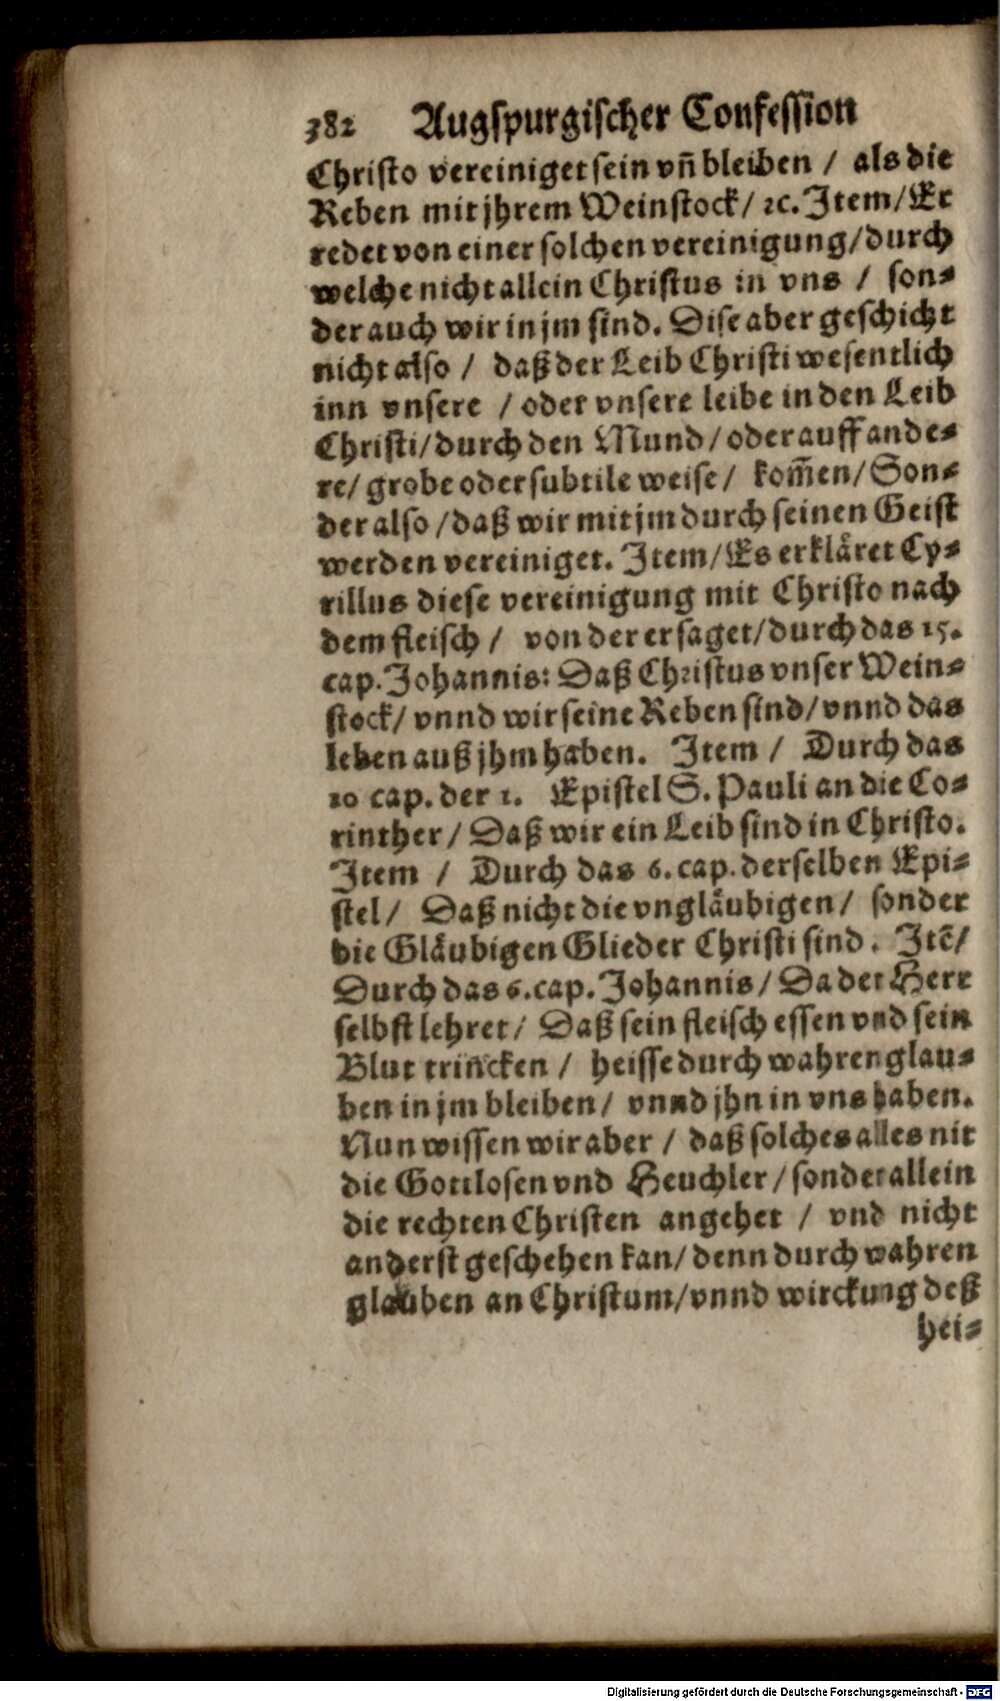 382 Augspurgischer Confession
Christo vereiniget sein vñ bleiben / als die
Reben mit jhrem Weinstock / ꝛc. Item / Er
redet von einer solchen vereinigung / durch
welche nicht allein Christus in vns / son⸗
der auch wir in jm sind. Dise aber geschicht
nicht also / daß der Leib Christi wesentlich
inn vnsere / oder vnsere leibe in den Leib
Christi / durch den Mund / oder auff ande⸗
re / grobe oder subtile weise / kom̃en / Son⸗
der also / daß wir mit jm durch seinen Geist
werden vereiniget. Item / Es erkläret Cy⸗
rillus diese vereinigung mit Christo nach
dem fleisch / von der er saget / durch das 15.
cap. Johannis: Daß Christus vnser Wein⸗
stock / vnnd wir seine Reben sind / vnnd das
leben auß jhm haben. Item / Durch das
10 cap. der 1. Epistel S. Pauli an die Co⸗
rinther / Daß wir ein Leib sind in Christo.
Item / Durch das 6. cap. derselben Epi⸗
stel / Daß nicht die vngläubigen / sonder
die Gläubigen Glieder Christi sind. Itē /
Durch das 6. cap. Johannis / Da der Herr
selbst lehret / Daß sein fleisch essen vnd sein
Blut trincken / heisse durch wahren glau⸗
ben in jm bleiben / vnnd jhn in vns haben.
Nun wissen wir aber / daß solches alles nit
die Gottlosen vnd Heuchler / sonder allein
die rechten Christen angehet / vnd nicht
anderst geschehen kan / denn durch wahren
glauben an Christum / vnnd wirckung deß
hei⸗
Digitalisierung gefördert durch die Deutsche Forschungsgemeinschaft - DFG